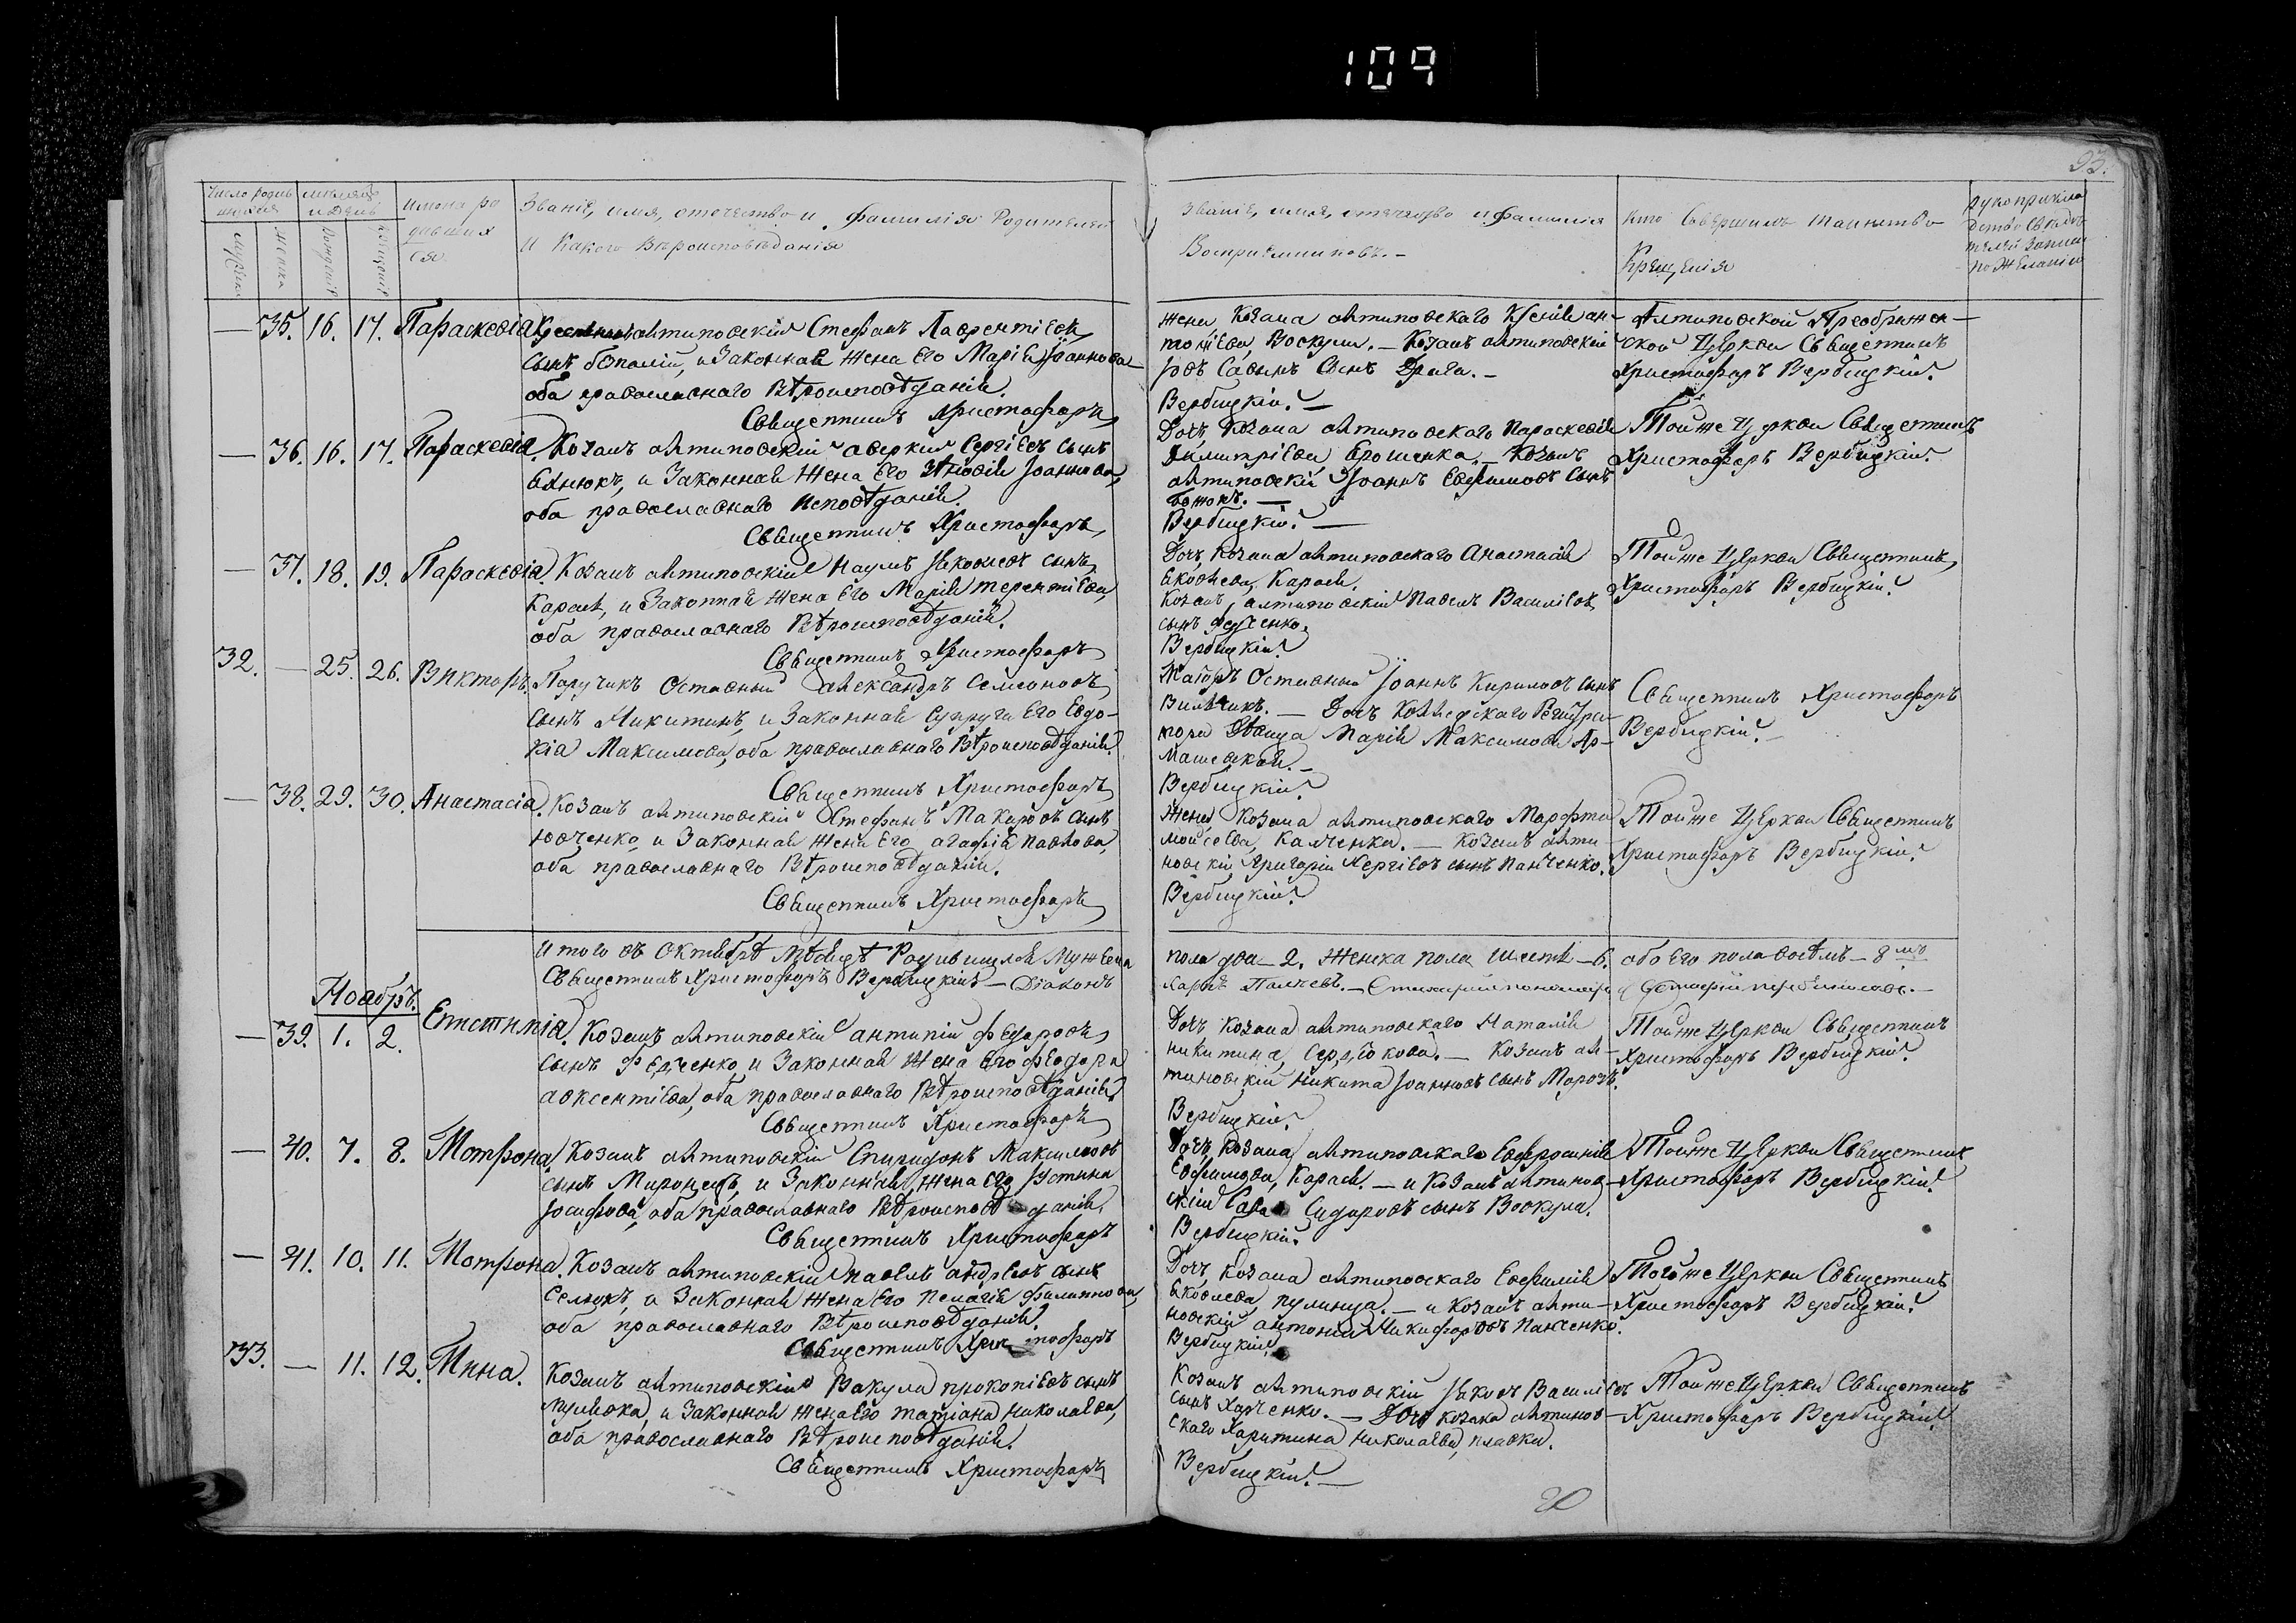 109
93.
Число родив
шихся
Мѣсяцъ
и День
Имена ро
дивших
ся.
Званіе, имя, отечество и фамилія Родителей
и Какого Вѣроисповѣданія
Званіе, имя, отечество и фамилія
Воспріемниковъ. —
Кто Совершилъ таинство
Крещенія
рукоприкла
детво Свидѣ
телей записи
по Желанію
— 35. 16. 17. Параскевія антиповскій Стефанъ Лаврентіевъ
сынъ , и Законная Жена Его Марія Іоаннова
оба православнаго Вѣроисповѣданія.
Священникъ Христофоръ
жена Козака антиповскаго Ксенія ан-
тоніева, Воскула. — Козакъ антиповскій
сынъ Драга. —
Вербицкій. —
Антиповской Преображен —
ской Церкви Священникъ
Христофоръ Вербицкій.
— 36. 16. 17. Параскевія. Козакъ антиповскій аверкій Сергіевъ сынъ
, и Законная Жена Его Іоаннова,
оба православнаго исповѣданія.
Священникъ Христофоръ
Дочь Козака антиповскаго Параскевія
Димитріева Ерошенка. — Козакъ
антиповскій Іоаннъ Евфимовъ Сынъ
Вербицкій. —
Тойже Церкви Священникъ
Христофоръ Вербицкій.
— 37. 18. 19. Параскевія. Козакъ антиповскій Наумъ Яковлевъ сынъ
Карась, и Законная Жена Его Марія терентіева,
оба православнаго Вѣроисповѣданія.
Священникъ Христофоръ
Дочь Козака антиповскаго Анастасія
Яковлева, Карась.
Козакъ антиповскій Павелъ Василіевъ
сынъ
Вербицкій.
Тойже Церкви Священникъ
Христофоръ Вербицкій.
32. — 25. 26. Викторъ. Поручикъ Оставный александръ Семеоновъ
сынъ Никитинъ, и Законная Супруга Его Евдо-
кія Максимова, оба православнаго Вѣроисповѣданія.
Священникъ Христофоръ
Маіоръ Оставный Іоаннъ Кириловъ Сынъ
. — Дочь Коллежскаго Регистра-
тора Марія Максимова Яр-
машевская. —
Вербицкій.
Священникъ Христофоръ
Вербицкій. —
— 38. 29. 30. Анастасія. Козакъ антиповскій Стефанъ Макаровъ сынъ
Юрченко, и Законная Жена Его агафія Павлова,
оба православнаго Вѣроисповѣданія.
Священникъ Христофоръ
Жена Козака антиповскаго Марфа
Мойсеева, Калченка. — Козакъ анти-
повскій Григорій Сергіевъ сынъ Панченко.
Вербицкій.
Тойже Церкви Священникъ
Христофоръ Вербицкій.
Итого въ Октябрѣ Мѣсяцѣ Родившихся Мужеска
Священникъ Христофоръ Вербицкій — Діаконъ
пола два — 2. Женска пола шесть — 6. обоего пола восемь — 8
Ноябрь.
— 39. 1. 2. Епистимія. Козакъ антиповскій антипій Федоровъ
сынъ Федченко, и Законная Жена Его Феодора
авксентіева, оба православнаго Вѣроисповѣданія.
Священникъ Христофоръ
Дочь Козака антиповскаго Наталія
никитина, Сердюкова. — Козакъ ан-
типовскій Никита Іоанновъ сынъ Морозъ.
Вербицкій.
Тойже Церкви Священникъ
Христофоръ Вербицкій.
— 40. 7. 8. Мотрона. Козакъ антиповскій Спиридонъ Максимовъ
сынъ Миронецъ, и Законная Жена Его Устина
Іосифова, оба православнаго Вѣроисповѣданія.
Священникъ Христофоръ
Дочь Козака антиповскаго Евфросинія
Евфимова, Карась. — и Козакъ антипов-
скій Сидоровъ сынъ Воскула.
Вербицкій.
Тойже Церкви Священникъ
Христофоръ Вербицкій.
— 41. 10. 11. Мотрона. Козакъ антиповскій Павелъ андреевъ сынъ
Селюкъ, и Законная Жена Его Пелагія филиппова,
оба православнаго Вѣроисповѣданія.
Священникъ Христофоръ
Дочь Козака антиповскаго Евфимія
Яковлева, Пулинца. — и Козакъ анти-
повскій антоній Никифоровъ Панченко.
Вербицкій.
Тогоже Церкви Священникъ
Христофоръ Вербицкій.
33. — 11. 12. Мина. Козакъ антиповскій Вакула прокопіевъ сынъ
, и Законная Жена Его татіана Николаева,
оба православнаго Вѣроисповѣданія.
Священникъ Христофоръ
Козакъ антиповскій Яковъ Василіевъ
сынъ Харченко. — Дочь Козака антипов-
скаго Харитина Николаева, плавка.
Вербицкій. —
Тойже Церкви Священникъ
Христофоръ Вербицкій.
20